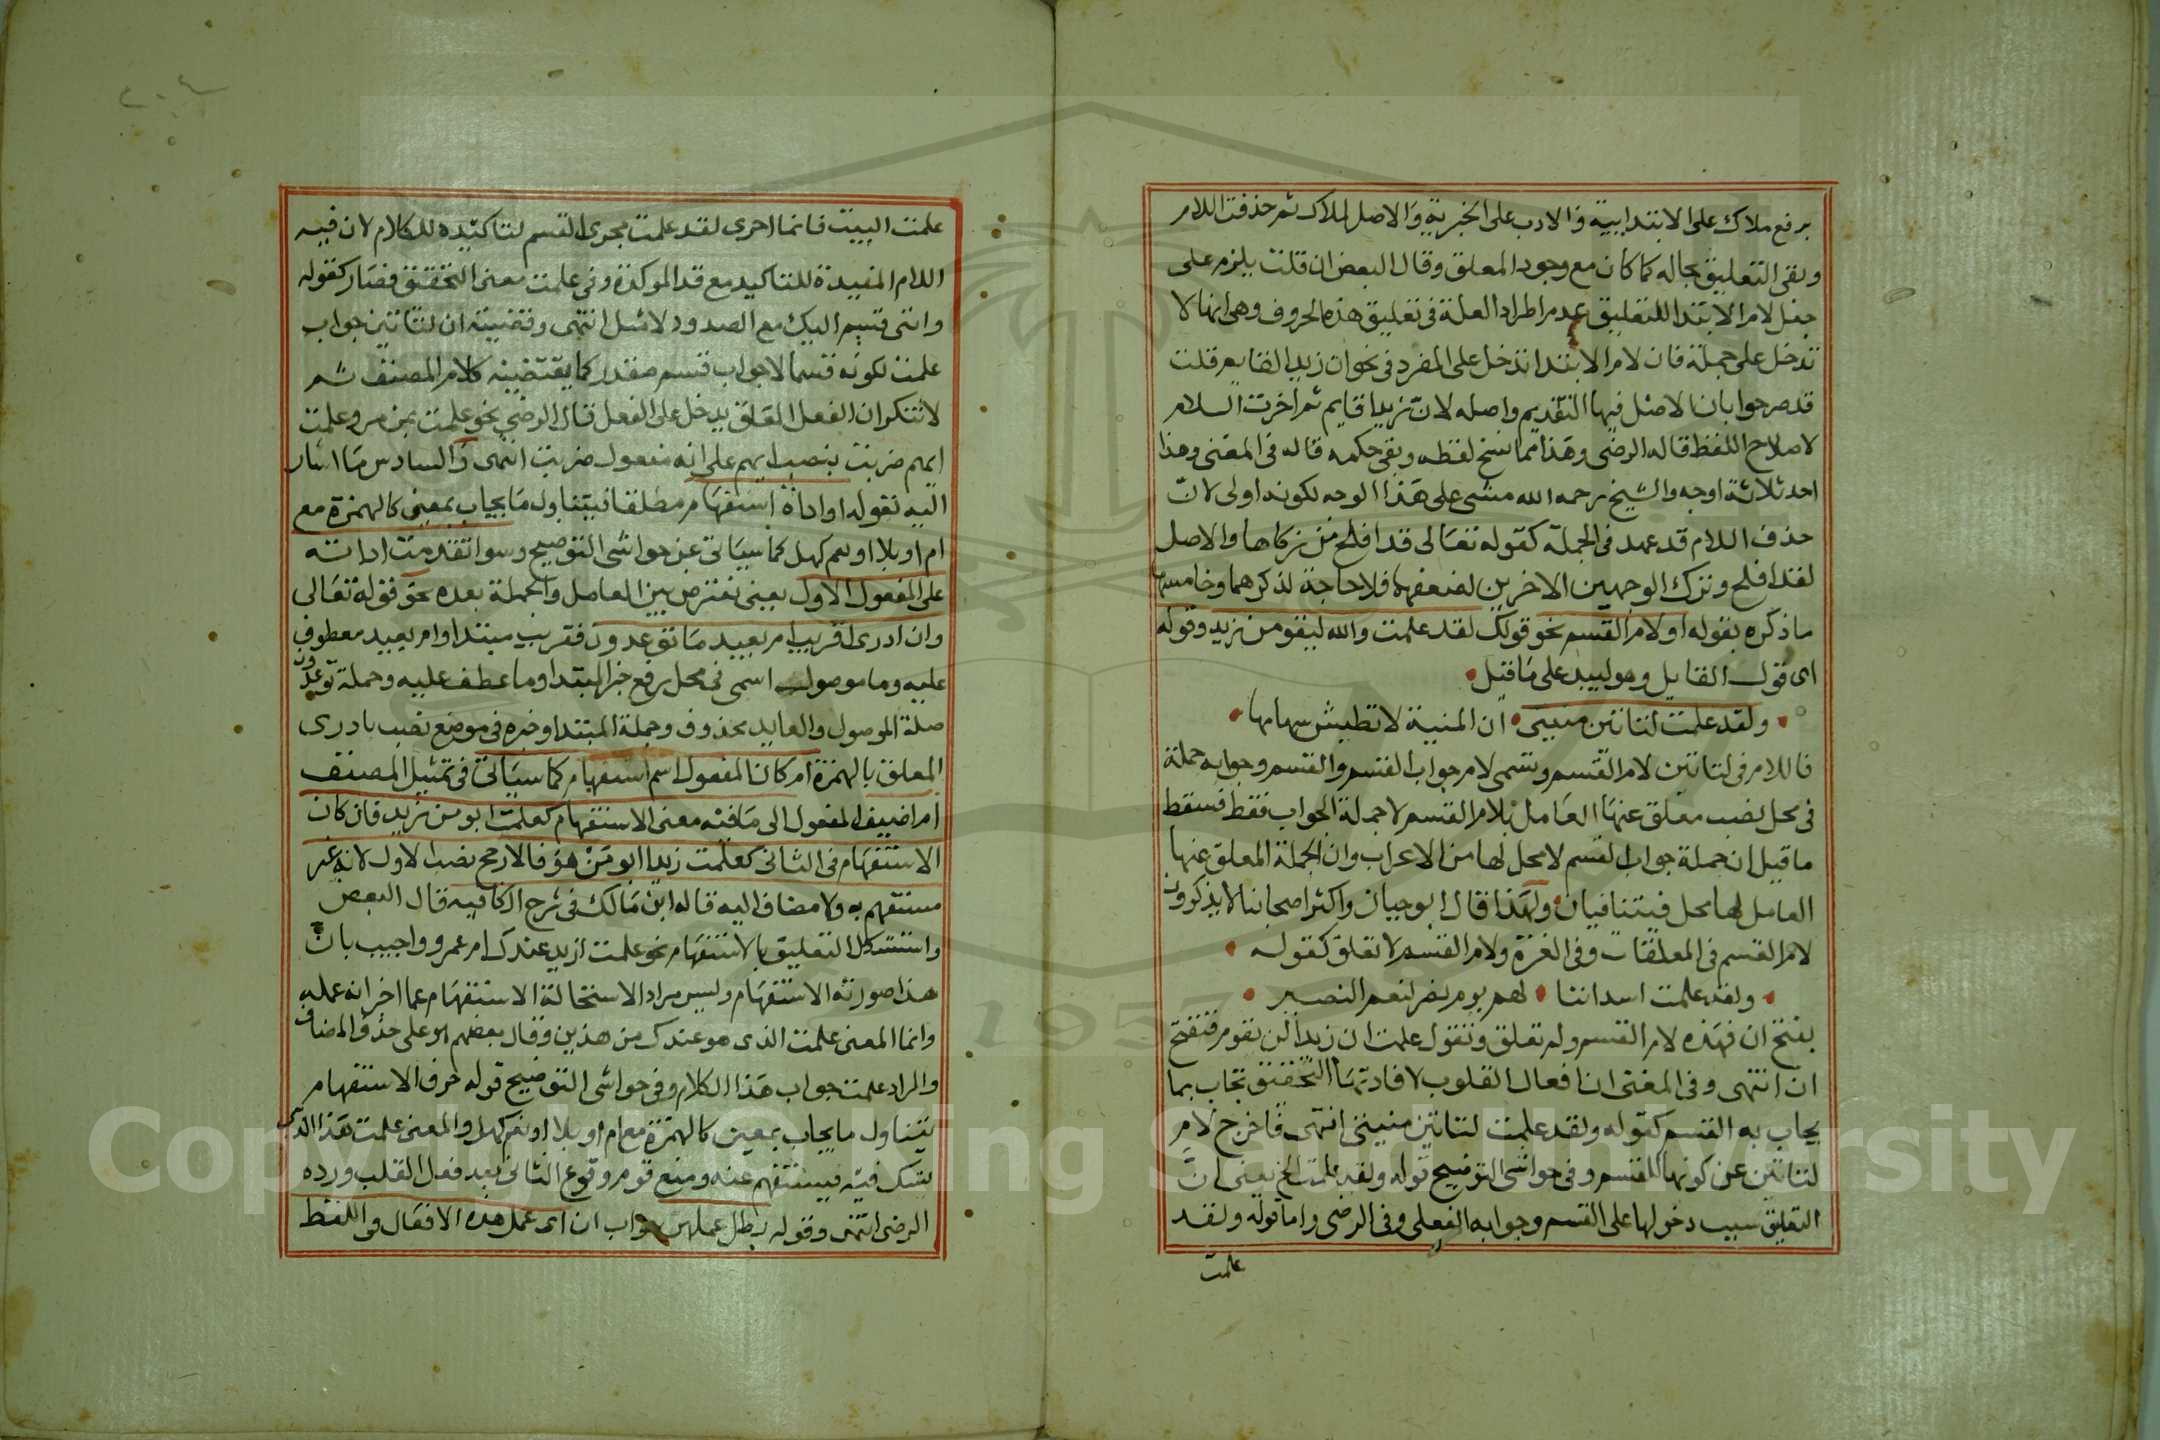 برفع ملاك على الابتدايية والادب على الخبرية والاصل لملاك ثم حذفت اللام
وبقى التعليق بحاله كما كان مع وجود المعلق وقال البعض ان قلت يلزم على
جعل لام الابتدا للتعليق عدم اطراد العلة فى تعليق هذه الحروف وهى انها لا
تدخل على جملة فان لام الابتدا تدخل على المفرد فى نحو ان زيدا لقايم قلت
قد مر جوابه بان الاصل فيها التقديم واصله لان زيدا قايم ثم أخرت اللام
لاصلاح اللفظ قاله الرضى وهذا مما نسخ لفظه وبقى حكمه قاله فى المغنى وهذا
احد ثلاثة اوجه والشيخ رحمه الله مشى على هذا الوجه لكونه اولى لان
حذف اللام قد عهد فى الجملة كقوله تعالى قد افلح من زكاها والاصل
لقد افلح وترك الوجهين الاخرين لضعفهما فلا حاجة لذكرهما وخامسها
ما ذكره بقوله او لام القسم نحو قولك لقد علمت والله ليقومن زيد وقوله
اى قول القايل وهو لبيد على ما قيل
ولقد علمت لتاتين منيتى ان المنية لا تطيش سهامها
فاللام فى لتاتين لام القسم وتسمى لام جواب القسم والقسم وجوابه جملة
فى محل نصب معلق عنها العامل بلام القسم لا جملة الجواب فقط فسقط
ما قيل ان جملة جواب القسم لا محل لها من الاعراب وان الجملة المعلق عنها
العامل لها محل فيتنافيان ولهذا قال ابو حيان واكثر اصحابنا لا يذكرون
لام القسم فى المعلقات وفى الغرة ولام القسم لا تعلق كقوله
ولقد علمت اسداننا لهم يوم نصر لنعم النصير
بفتح ان فهذه لام القسم ولم تعلق وتقول علمت ان زيدا لن يقوم فتفتح
ان انتهى وفى المغنى ان افعال القلوب لافادتها التحقيق تجاب بما
يجاب به القسم كقوله ولقد علمت لتاتين منيتى انتهى فاخرج لام
لتاتين عن كونها للقسم وفى حواشى التوضيح قوله ولقد علمت الخ يعنى ان
التعليق سبب دخولها على القسم وجوابه الفعلى وفى الرضى واما قوله ولقد
علمت
علمت البيت فانما اجرى لقد علمت مجرى القسم لتاكيده للكلام لان فيه
اللام المفيدة للتاكيد مع قد الموكدة وفى علمت معنى التحقيق فصار كقوله
وانى قسيم اليك مع الصدود لاميل انتهى وقضيته ان لتاتين جواب
علمت لكونه قسما لا جواب قسم مقدر كما يقتضيه كلام المصنف ثم
لا تنكر ان الفعل المعلق يدخل على الفعل قال الرضى نحو علمت بمن مر وعلمت
ايهم ضربت بنصب ايهم على انه مفعول ضربت انتهى والسادس ما اشار
اليه بقوله او اداة استفهام مطلقا فيتناول ما يجاب بمعين كالهمزة مع
ام او بلا او نعم كهل كما سياتى عن حواشى التوضيح وسوا تقدمت اداته
على المفعول الاول بمعنى تعترض بين العامل والجملة بعده نحو قوله تعالى
وان ادرى اقريب ام بعيد ما توعدون فقريب مبتدا وام بعيد معطوف
عليه وما موصول اسمى فى محل رفع خبر المبتدا وما عطف عليه وجملة توعدون
صلة الموصول والعايد محذوف وجملة المبتدا وخبره فى موضع نصب بادرى
المعلق بالهمزة ام كان المفعول اسم استفهام كما سياتى فى تمثيل المصنف
ام اضيف المفعول الى ما فيه معنى الاستفهام كعلمت ابو من زيد فان كان
الاستفهام فى الثانى كعلمت زيدا ابو من هو فالارجح نصب الاول لانه غير
مستفهم به ولا مضاف اليه قاله ابن مالك فى شرح الكافية قال البعض
واستشكل التعليق بالاستفهام نحو علمت ازيد عندك ام عمرو واجيب بان
هذا صورته الاستفهام وليس مراد الاستحالة الاستفهام عما اخبر انه علمه
وانما المعنى علمت الذى هو عندك من هذين وقال بعضهم هو على حذف المضاف
والمراد علمت جواب هذا الكلام وفى حواشى التوضيح قوله حرف الاستفهام
يتناول ما يجاب بمعين كالهمزة مع ام او بلا او نعم كهل والمعنى علمت هذا الذى
يشك فيه فيستفهم عنه ومنع قوم وقوع الثانى بعد فعل القلب ورده
الرضى انتهى وقوله بطل عملهن جواب ان اى عمل هذه الافعال واللفظ
Copyright © King Saud University
1957